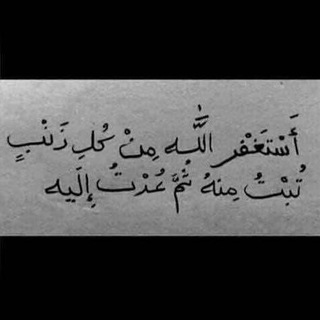 أَسْتَغْفِر اللَّه مِنْ كُلِ ذَنْبٍ
تُبْتُ مِنهُ ثُمَّ عُدْتُ إِلَيه